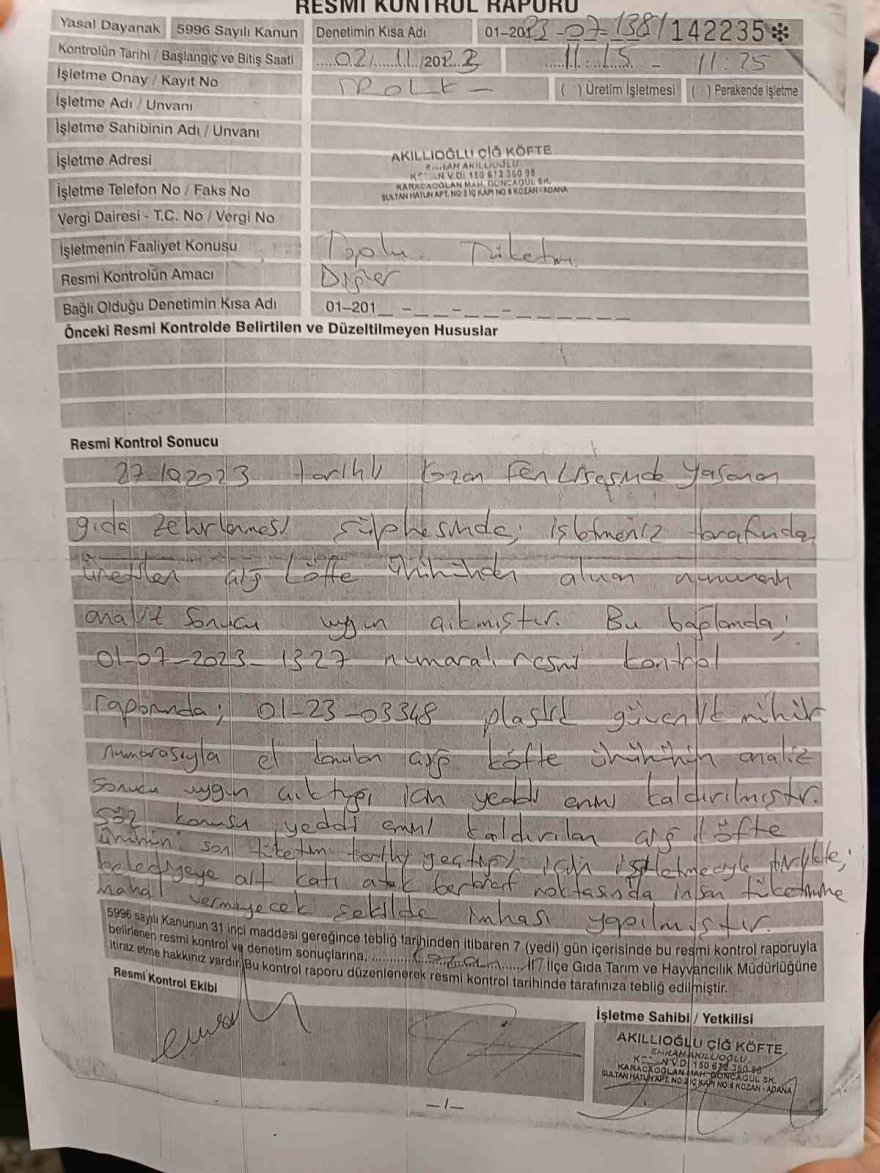 RESMİ KONTROL RAPORU
Yasal Dayanak 5996 Sayılı Kanun Denetimin Kısa Adı 01-2023-07-1381142235✻
Kontrolün Tarihi / Başlangıç ve Bitiş Saati 02/11/2023 11:15 - 11:25
İşletme Onay / Kayıt No ( ) Üretim İşletmesi ( ) Perakende İşletme
İşletme Adı / Unvanı
İşletme Sahibinin Adı / Unvanı
İşletme Adresi
AKILLIOĞLU ÇİĞ KÖFTE
EMRAH AKILLIOĞLU
V.D: 150 672 350 98
KARACAOĞLAN MAH. GONCAGÜL SK.
SULTAN HATUN APT. NO:2 İÇ KAPI NO:8 KOZAN - ADANA
İşletme Telefon No / Faks No
Vergi Dairesi - T.C. No / Vergi No
İşletmenin Faaliyet Konusu Toplu Tüketim
Resmi Kontrolün Amacı Diğer
Bağlı Olduğu Denetimin Kısa Adı 01-201_ _-_ _-_ _-_ _ _ _ _ _
Önceki Resmi Kontrolde Belirtilen ve Düzeltilmeyen Hususlar
Resmi Kontrol Sonucu
27.10.2023 tarihli Kozan Fen Lisesinde yaşanan
gıda zehirlenmesi şüphesinde; işletmeniz tarafından
üretilen çiğ köfte ürününden alınan numunenin
analiz sonucu uygun çıkmıştır. Bu bağlamda;
01-07-2023-1327 numaralı resmi kontrol
raporunda; 01-23-03348 plastik güvenlik mühür
numarasıyla el konulan çiğ köfte ürününün analiz
sonucu uygun çıktığı için yeddi emin kaldırılmıştır.
Söz konusu yeddi emini kaldırılan çiğ köfte
ürünün son tüketim tarihi geçtiği için işletmeciyle birlikte;
belediyeye ait katı atık bertaraf noktasında insan tüketimine
mahal vermeyecek şekilde imhası yapılmıştır.
5996 sayılı Kanunun 31 inci maddesi gereğince tebliğ tarihinden itibaren 7 (yedi) gün içerisinde bu resmi kontrol raporuyla
belirlenen resmi kontrol ve denetim sonuçlarına, Kozan İl / İlçe Gıda Tarım ve Hayvancılık Müdürlüğüne
itiraz etme hakkınız vardır. Bu kontrol raporu düzenlenerek resmi kontrol tarihinde tarafınıza tebliğ edilmiştir.
Resmi Kontrol Ekibi
İşletme Sahibi / Yetkilisi
AKILLIOĞLU ÇİĞ KÖFTE
EMRAH AKILLIOĞLU
V.D: 150 672 350 98
KARACAOĞLAN MAH. GONCAGÜL SK.
SULTAN HATUN APT. NO:2 İÇ KAPI NO:8 KOZAN - ADANA
-1-